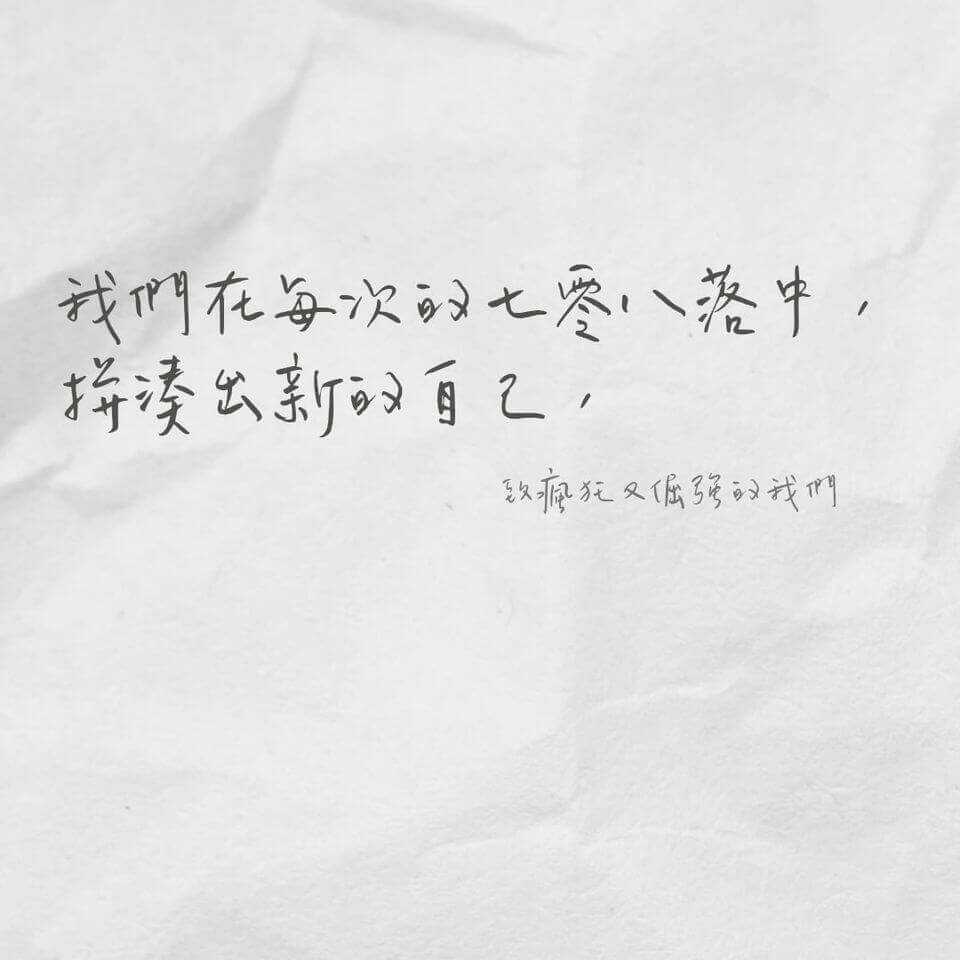 我們在每次的七零八落中，
拼湊出新的自己，
致瘋狂又倔強的我們